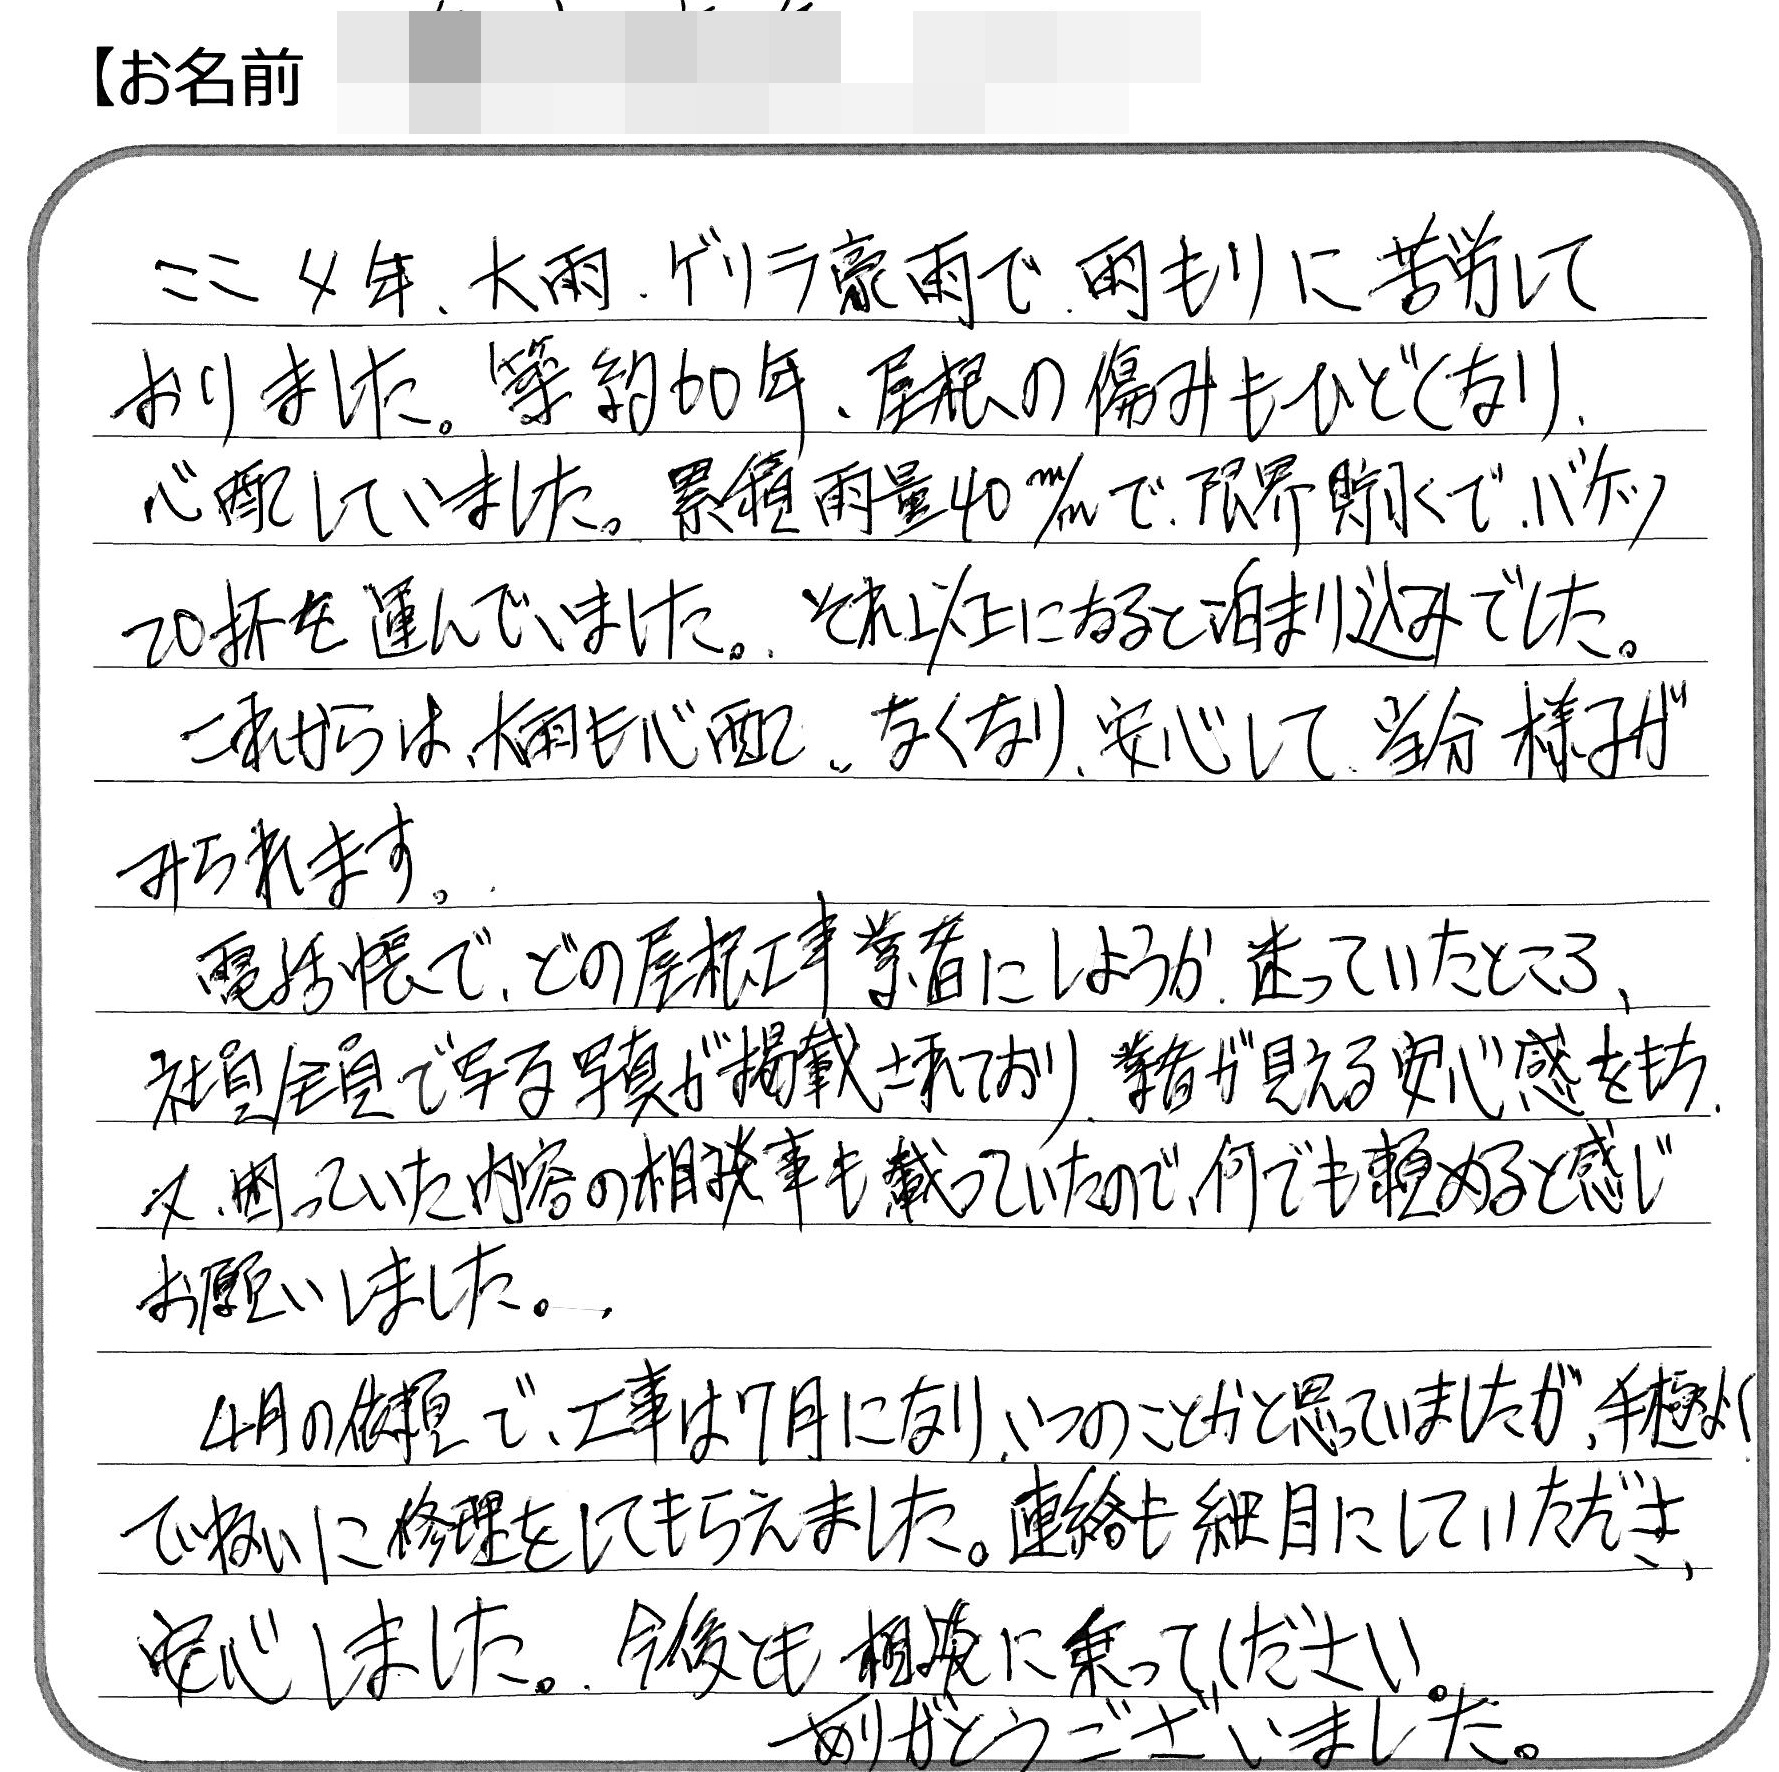 【お名前
ここ4年、大雨、ゲリラ豪雨で、雨もりに苦労して
おりました。築約60年、屋根の傷みもひどくなり、
心配していました。累積雨量40m/mで、限界貯水で、バケツ
20杯を運んでいました。それ以上になると泊まり込みでした。
これからは、大雨も心配なくなり、安心して、当分様子が
みられます。
電話帳で、どの屋根工事業者にしようか、迷っていたところ、
社員全員で写る写真が掲載されており、業者が見える安心感をもち、
又、困っていた内容の相談事も載っていたので、何でも頼めると感じ
お願いしました。
4月の依頼で、工事は7月になり、いつのことかと思っていましたが、手極よく
ていねいに修理をしてもらえました。連絡も細目にしていただき、
安心しました。今後とも相談に乗ってください。
ありがとうございました。